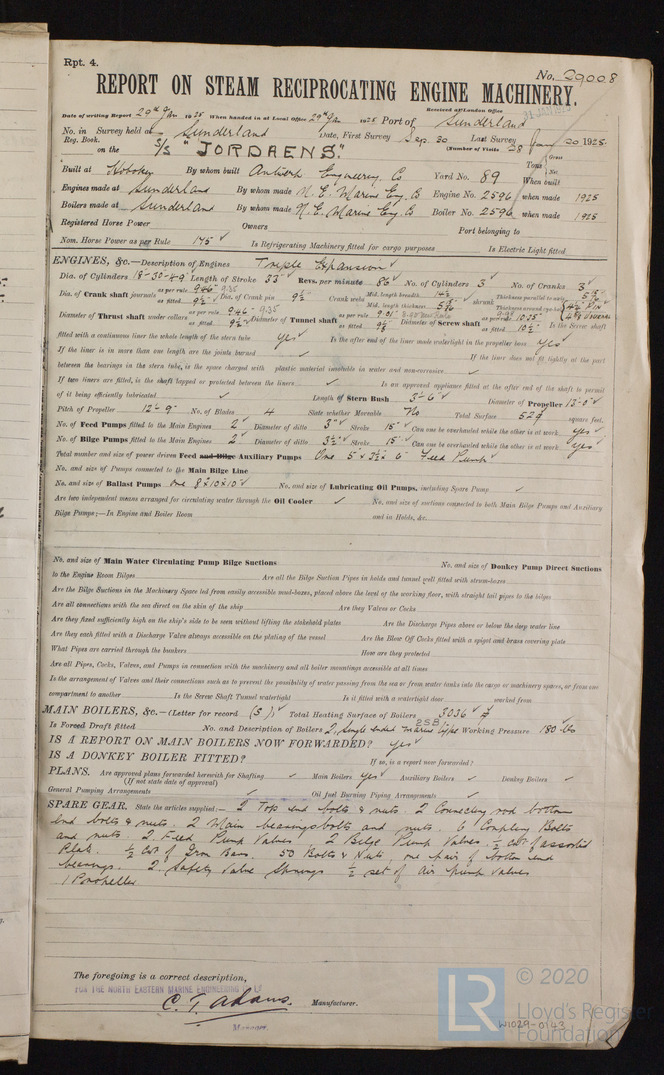 Rpt. 4.
No. 29008
REPORT ON STEAM RECIPROCATING ENGINE MACHINERY.
Received at London Office
Date of writing Report 29th Jan 1925 When handed in at Local Office 29th Jan 1925 Port of Sunderland
No. in Survey held at Sunderland Date, First Survey Sep. 30 Last Survey Jan 20 1925
Reg. Book. (Number of Visits 28
on the S/S "JORDAENS". Tons Gross Net
Built at Hoboken By whom built Antwerp Engineering Co Yard No. 89 When built
Engines made at Sunderland By whom made N. E. Marine Eng. Co Engine No. 2596 when made 1925
Boilers made at Sunderland By whom made N. E. Marine Eng. Co Boiler No. 2596 when made 1925
Registered Horse Power Owners Port belonging to
Nom. Horse Power as per Rule 175 Is Refrigerating Machinery fitted for cargo purposes Is Electric Light fitted
ENGINES, &c.—Description of Engines Triple Expansion
Dia. of Cylinders 18-30-49 Length of Stroke 33 Revs. per minute 86 No. of Cylinders 3 No. of Cranks 3
Dia. of Crank shaft journals as per rule 9.46 as fitted 9½ Dia. of Crank pin 9½ Crank webs Mid. length breadth 14½ Mid. length thickness shrunk Thickness parallel to axis Thickness around eye-hole
Diameter of Thrust shaft under collars as per rule 9.46 as fitted 9½ Diameter of Tunnel shaft as per rule 9.01 as fitted Diameter of Screw shaft as per rule as fitted 10½ Is the Screw shaft
fitted with a continuous liner the whole length of the stern tube yes Is the after end of the liner made watertight in the propeller boss yes
If the liner is in more than one length are the joints burned If the liner does not fit tightly at the part
between the bearings in the stern tube, is the space charged with plastic material insoluble in water and non-corrosive
If two liners are fitted, is the shaft lapped or protected between the liners Is an approved appliance fitted at the after end of the shaft to permit
of it being efficiently lubricated Length of Stern Bush 3'-6" Diameter of Propeller 13'-0"
Pitch of Propeller 12'-9" No. of Blades 4 State whether Moveable No Total Surface 529 square feet.
No. of Feed Pumps fitted to the Main Engines 2 Diameter of ditto 3" Stroke 15" Can one be overhauled while the other is at work yes
No. of Bilge Pumps fitted to the Main Engines 2 Diameter of ditto 3½" Stroke 15" Can one be overhauled while the other is at work yes
Total number and size of power driven Feed and Bilge Auxiliary Pumps One 5" x 3½" x 6" Feed Pump
No. and size of Pumps connected to the Main Bilge Line
No. and size of Ballast Pumps One 8x10x10 No. and size of Lubricating Oil Pumps, including Spare Pump
Are two independent means arranged for circulating water through the Oil Cooler No. and size of suctions connected to both Main Bilge Pumps and Auxiliary
Bilge Pumps;—In Engine and Boiler Room and in Holds, &c.
No. and size of Main Water Circulating Pump Bilge Suctions No. and size of Donkey Pump Direct Suctions
to the Engine Room Bilges Are all the Bilge Suction Pipes in holds and tunnel well fitted with strum-boxes
Are the Bilge Suctions in the Machinery Space led from easily accessible mud-boxes, placed above the level of the working floor, with straight tail pipes to the bilges
Are all connections with the sea direct on the skin of the ship Are they Valves or Cocks
Are they fixed sufficiently high on the ship's side to be seen without lifting the stokehold plates Are the Discharge Pipes above or below the deep water line
Are they each fitted with a Discharge Valve always accessible on the plating of the vessel Are the Blow Off Cocks fitted with a spigot and brass covering plate
What Pipes are carried through the bunkers How are they protected
Are all Pipes, Cocks, Valves, and Pumps in connection with the machinery and all boiler mountings accessible at all times
Is the arrangement of Valves and their connections such as to prevent the possibility of water passing from the sea or from water tanks into the cargo or machinery spaces, or from one
compartment to another Is the Screw Shaft Tunnel watertight Is it fitted with a watertight door worked from
MAIN BOILERS, &c.—(Letter for record (S) Total Heating Surface of Boilers 3036
Is Forced Draft fitted No. and Description of Boilers 2, Single ended marine type 2SB Working Pressure 180 lbs
IS A REPORT ON MAIN BOILERS NOW FORWARDED? yes
IS A DONKEY BOILER FITTED? If so, is a report now forwarded?
PLANS. Are approved plans forwarded herewith for Shafting Main Boilers Yes Auxiliary Boilers Donkey Boilers
(If not state date of approval)
General Pumping Arrangements Oil fuel Burning Piping Arrangements
SPARE GEAR. State the articles supplied:— 2 Top end bolts & nuts. 2 Connecting rod bottom
end bolts & nuts. 2 Main bearings bolts and nuts. 6 Coupling Bolts
and nuts. 2 Feed Pump Valves 2 Bilge Pump Valves. ½ cwt of assorted
Plate. ½ Cwt of Iron Bars. 50 Bolts & Nuts, one pair of bottom end
bearings. 2 Safety Valve Springs ½ set of air pump valves
1 Propeller
The foregoing is a correct description,
FOR THE NORTH EASTERN MARINE ENGINEERING Co Ld
C. T. Adams. Manufacturer.
Manager.
© 2020
LR
Lloyd's Register
Foundation
W1029-0143